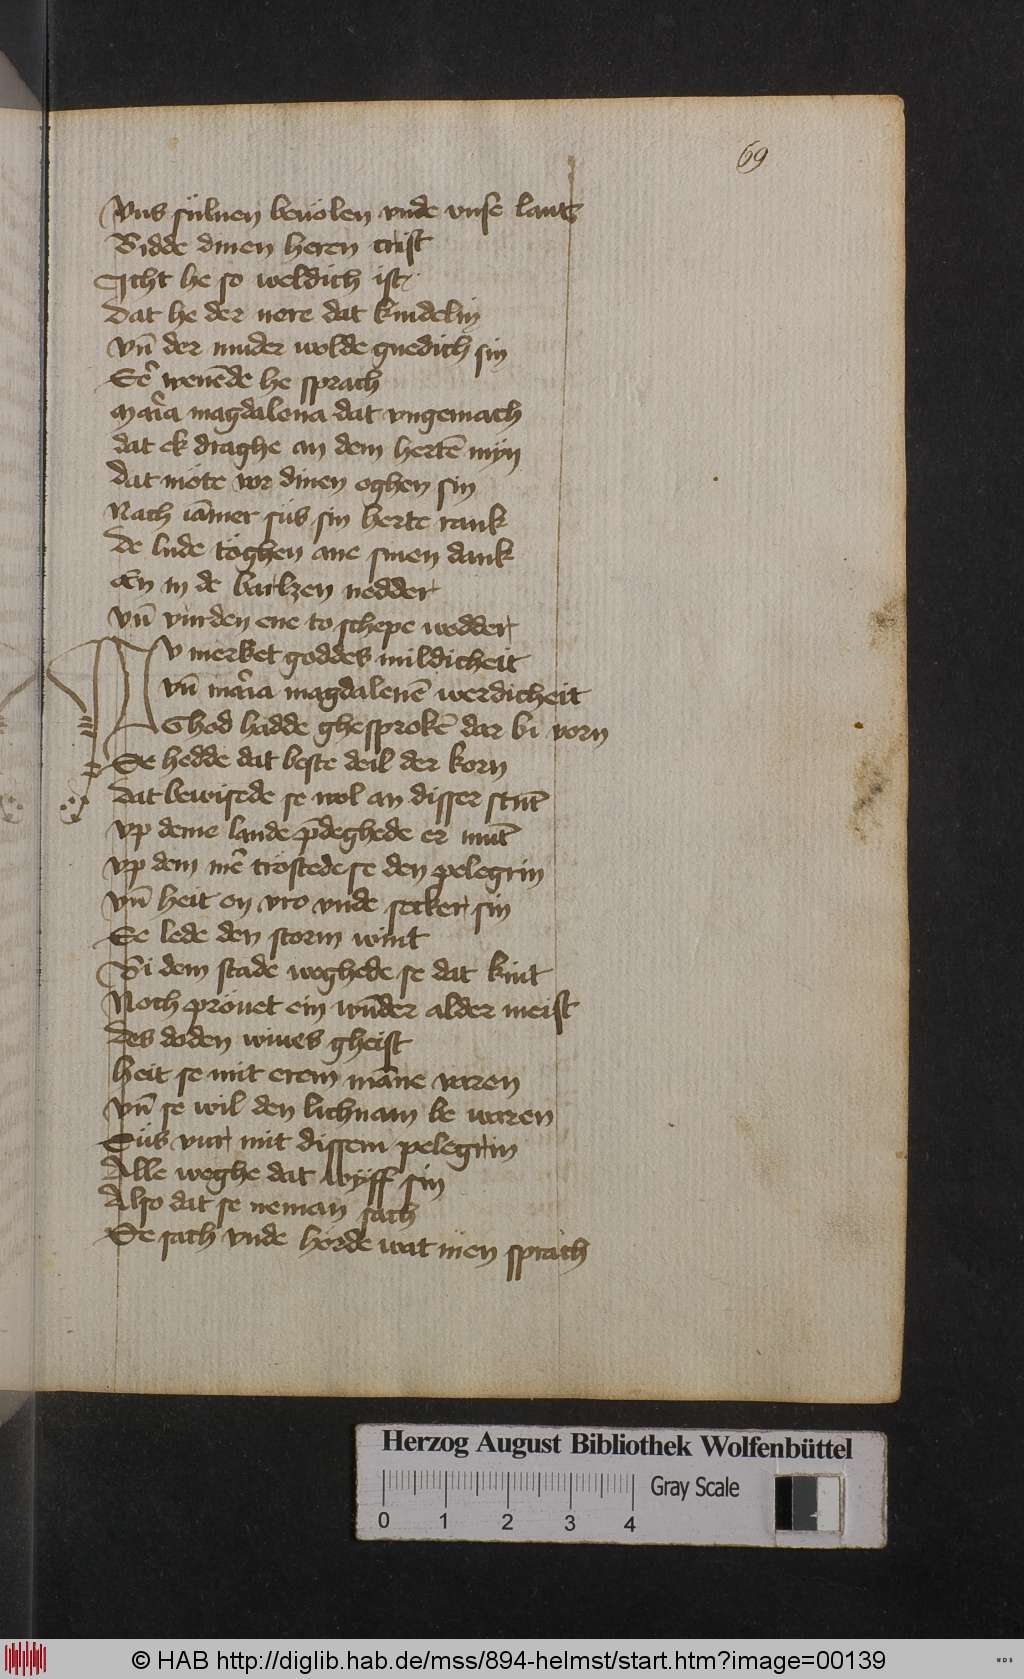 69
Vns süluen beuölen vnde vnse lant
Bidde dinen heren crist
Icht he so weldich ist
Dat he der nere dat kindelin
vn̄ der muder wolde gnedich sin
Sēr wenēde he sprach
Maria magdalena dat vngemach
dat ek draghe an dem hertē myn
dat möte vor dinen oghen sin
Nach iāmer sus sin herte rank
De lude töghen ane sinen dank
en in de barlzen nedder
vn̄ vurden ene to schepe wedder
Nv merket goddes mildicheit
vn̄ maria magdalenē werdicheit
Ghod hadde ghesprokē dar bi vorn
Se hedde dat beste deil der korn
Dat bewisede se wol an disser stūt
vp deme lande p̄deghede er mūt
vp dem mēr tröstede se den pelegrin
vn̄ heit en vro vnde secker sin
Se lede den storm wint
Bi dem stade weghede se dat kint
Noch pröuet ein wūder alder meist
des doden wiues gheist
heit se mit erem māne varen
vn̄ se wil den lichnam be waren
Süs vur mit dissem pelegrin
Alle weghe dat wyff sin
Also dat se neman sach
Se sach vnde hörde wat men sprach
Herzog August Bibliothek Wolfenbüttel
0 1 2 3 4
Gray Scale
© HAB http://diglib.hab.de/mss/894-helmst/start.htm?image=00139
WDB